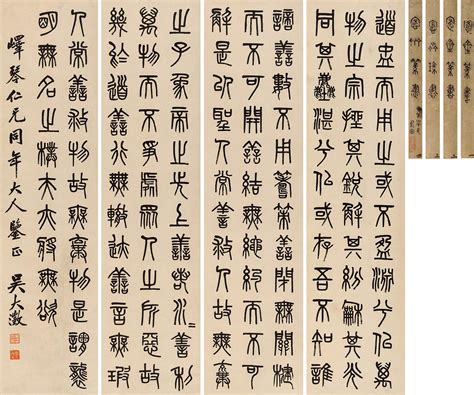 道盅而用之或不盈淵兮萬
物之宗挫其銳解其紛龢其光
同其塵湛兮似或存吾不知誰
之子象帝之先上善若水善利
萬物而不爭居眾人之所惡故
幾於道善行無轍迹善言無瑕
謫善數不用籌策善閉無關楗
而不可開善結無繩約而不可
解是以聖人常善救人故無棄
人常善救物故無棄物是謂襲
明無名之樸夫亦將無欲
嶧琴仁兄同年大人鑒正 吳大澂